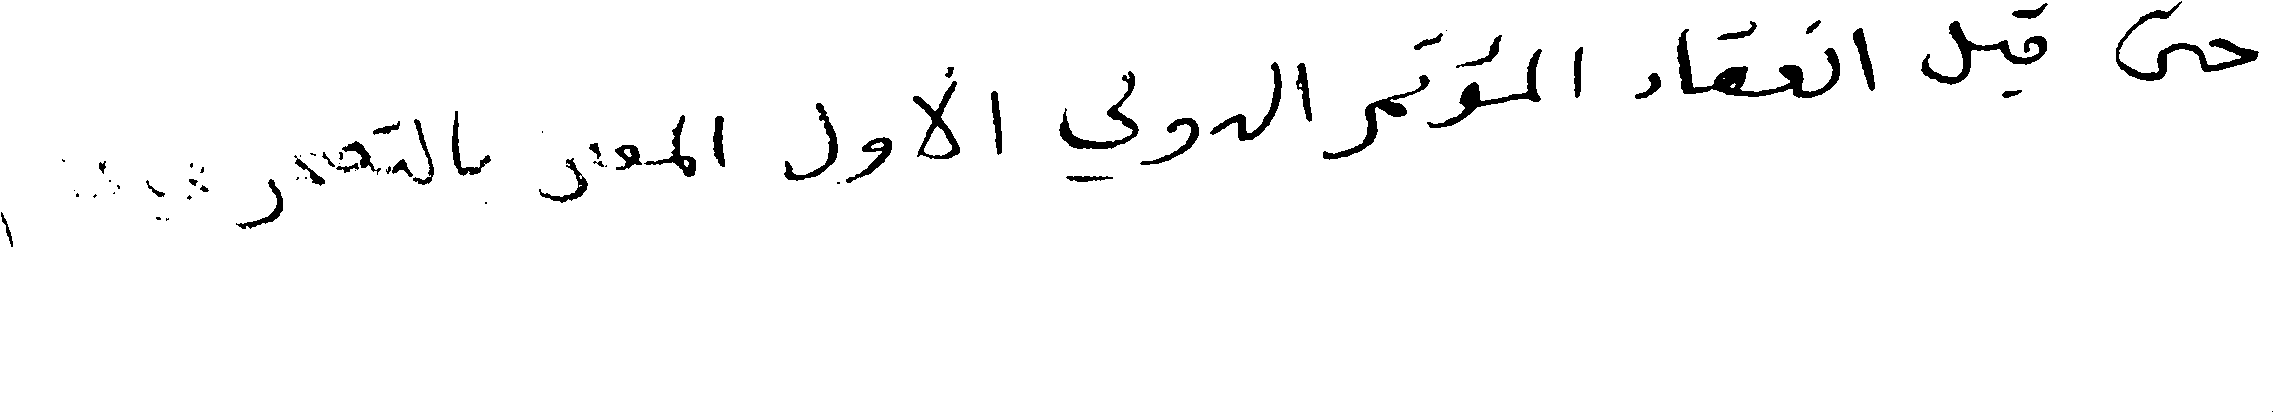 حتى قبل انعقاد المؤتمر الدولي الأول المعني بالتصحر